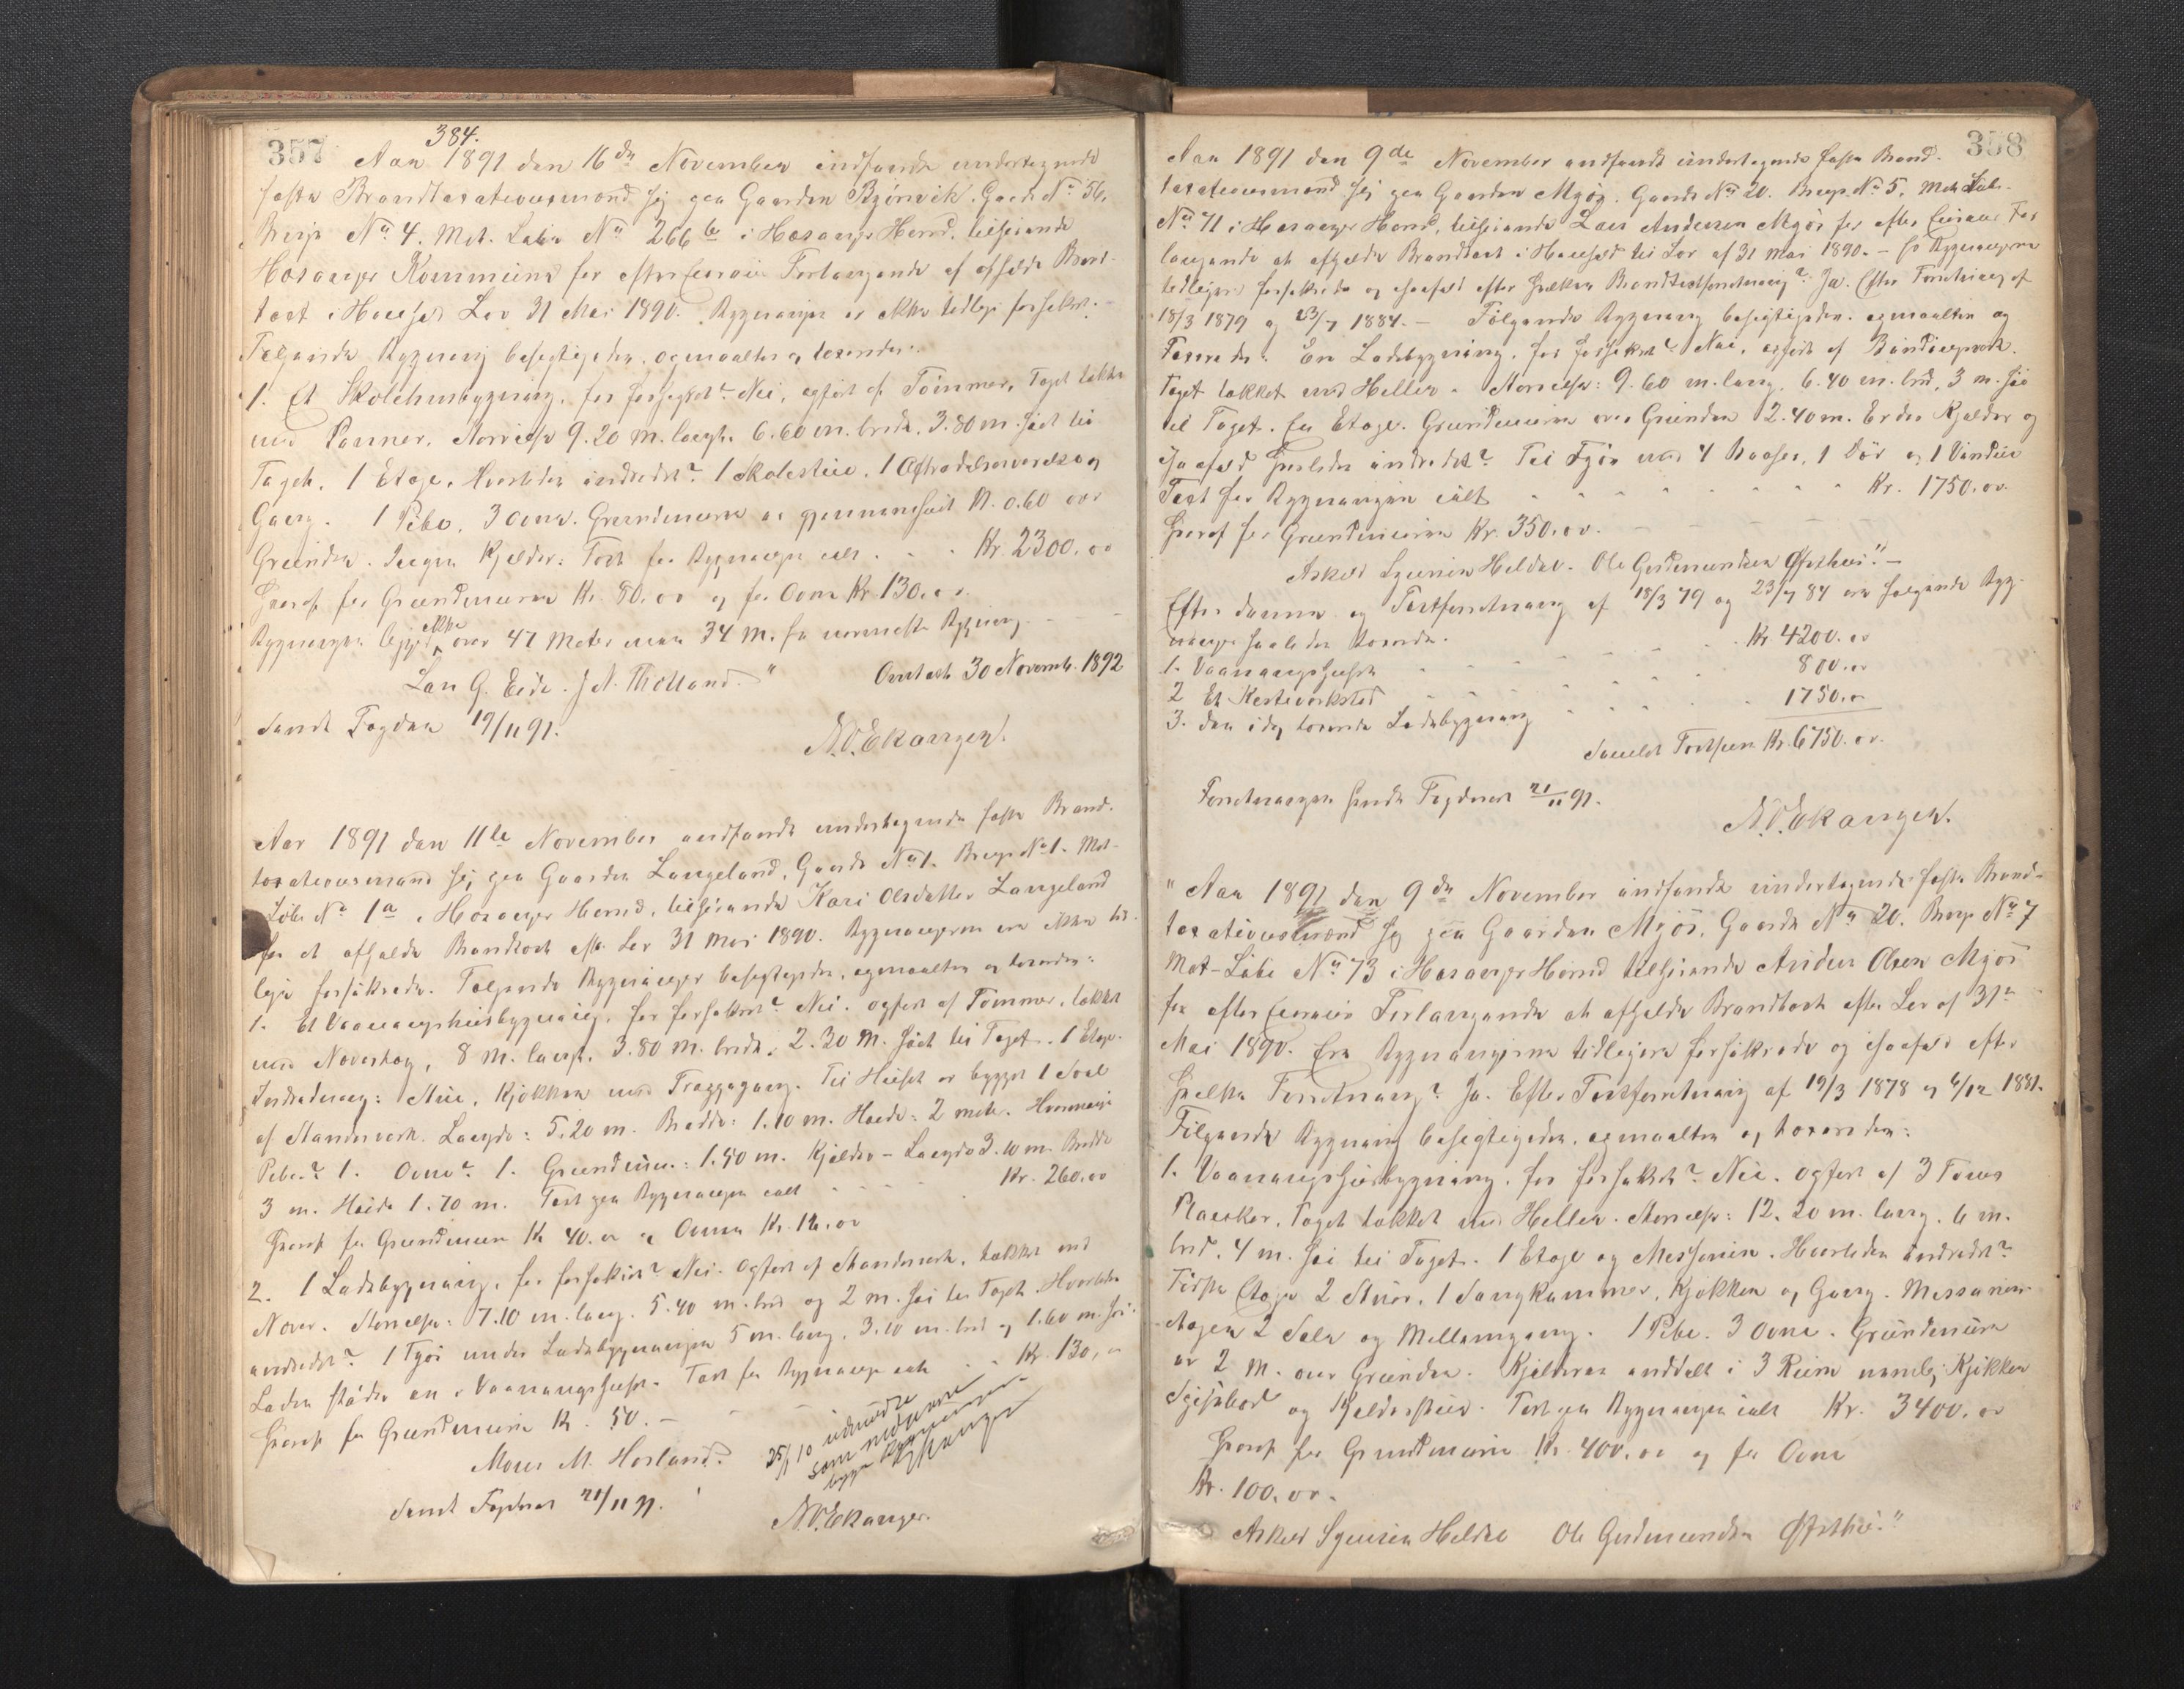 357
384.
Aar 1891 den 16de November indfandt undertegnede
faste Brandtaxationsmænd sig paa Gaarden Bjørnvik. Gards No 56,
Brugs No 4. Mat. Løbe No 266 b i Hosanger Herred, tilhørende
Hosanger Kommune for efter Eierens Forlangende at afholde Brand-
taxt i Henhold Lov 31 Mai 1890. Bygningen er ikke tidlige forsikret.
Følgende Bygning besigtigedes, opmaaltes og taxeredes:
1. Et Skolehusbygning, før forsikret? Nei, opført af Tømmer, Taget tækket
med Panner, Størrelse 9.20 m. langt, 6.60 m. bredt, 3.80 m. høit til
Taget. 1 Etage. Hvorledes indredet? 1 Skolestue, 1 Aftrædelsesværelse og
Gang. 1 Pibe, 3 Ovne. Grundmuren er gjennemsnit M. 0.60 over
Grunden. Ingen Kjelder. Taxt for Bygningen ialt Kr. 2300.00
Heraf for Grundmuren Kr. 80.00 og for Ovne Kr. 130.00
Bygningen ligger ikke over 47 Meter men 34 M. fra nærmeste Bygning.
Lars G. Eide. J. A. Tholland." Omtaxt 30 Novemb. 1892
Sendt Fogden 19/11 91.
N. O. Ekanger.
Aar 1891 den 11te November indfandt undertegnede faste Brand-
taxationsmænd sig paa Gaarden Langeland, Gards No 1. Brugs No 1. Mat-
Løbe No 1a i Hosanger Herred, tilhørende Kari Olsdatter Langeland
for at afholde Brandtaxt efter Lov 31 Mai 1890. Bygningerne ere ikke tid-
ligere forsikrede. Følgende Bygninger besigtigedes, opmaaltes og taxeredes:
1. Et Vaaningshusbygning, før forsikret? Nei. opført af Tømmer, tækket
med Nævertag, 8 m. langt, 3.80 m. bredt, 2.30 M. høit til Taget. 1 Etage.
Indredning: Stue, Kjøkken med Trappegang. Til Huset er bygget 1 Sval
af Standverk. Længde: 5.20 m. Bredde: 1.10 m. Høide: 2 met. Hvormange
Piber? 1. Ovne? 1. Grundmur: 1.50 m. Kjelder - Længde 3.10 m. Bredde
3 m. Høide 1.70 m. Taxt paa Bygningen ialt Kr. 260.00
Heraf for Grundmuren Kr 40.00 og Ovnen Kr. 12.00
2. 1 Ladebygning, før forsikret? Nei. Opført af Standverk, tækket med
Næver. Størrelse: 7.10 m. lang. 5.40 m. bred og 2 m. høi til Taget. Hvorledes
indredet? 1 Fjøs under Ladebygningen 5 m. lang, 3.10 m. bred og 1.60 m. høi.
Laden støder an i Vaaningshuset. Taxt for Bygningen ialt Kr. 130,00
Heraf for Grundmuren Kr. 50.-
Mons M. Horland.
25/10 udmeldte
som nedrevne
Ekanger
Sendt Fogden 21/11 91.
N. O. Ekanger.
358
Aar 1891 den 9de November indfandt undertegnede faste Brand-
taxationsmænd sig paa Gaarden Mjøs. Gards No 20. Brugs No 5. Mat. Løbe-
No 71 i Hosanger Herred, tilhørende Lars Andersen Mjøs for efter Eierens For-
langende at afholde Brandtaxt i Henhold til Lov af 31 Mai 1890. - Er Bygningerne
tidligere forsikrede og isaafald efter hvilken Brandtaxtforretning? Ja. Efter Forretning af
18/3 1879 og 23/7 1884. - Følgende Bygning besigtigedes, opmaaltes og
Taxeredes: En Ladebygning, før forsikret? Nei, opført af Bindingverk.
Taget tækket med Heller. Størrelse: 9.60 m. lang, 6.40 m. bred, 3 m. høi
til Taget. En Etage. Grundmuren over Grunden 2.40 m. Er der Kjelder og
isaafald hvorledes indredet? Til Fjøs med 4 Baaser, 1 Dør og 1 Vindue
Taxt for Bygningen ialt Kr. 1750.00
Heraf for Grundmuren Kr. 350.00.
Askild Sjursen Heldal. Ole Gudmundsen Øpsthus". -
Efter denne og Taxtforretning af 18/3 79 og 23/7 84 ere følgende Byg-
ninger saaledes taxerede.
1. Vaaningshuset Kr 4200.00
2 Et Kasteværksted 800.00
3. Den idag taxerede Ladebygning 1750.00
Samlet Taxtsum Kr. 6750.00.
Forretningen sendt Fogderiet 21/11 91.
N. O. Ekanger.
"Aar 1891 den 9de November indfandt undertegnede faste Brand-
taxationsmænd sig paa Gaarden Mjøs, Gards No 20. Brugs No 7
Mat-Løbe No 73 i Hosanger Herred tilhørende Anders Olsen Mjøs
for efter Eierens Forlangende at afholde Brandtaxt efter Lov af 31te
Mai 1890. Ere Bygningerne tidligere forsikrede og isaafald efter
hvilken Forretning? Ja. Efter Taxtforretning af 19/3 1878 og 6/12 1881.
Følgende Bygning besigtigedes, opmaaltes og taxeredes:
1. Vaaningshusbygning, før forsikret? Nei. Opført af 3 Toms
Planker. Taget tækket med Heller. Størrelse: 12.20 m. lang. 6 m.
bred. 4 m. høi til Taget. 1 Etage og Messanin. Hvorledes indredet?
Første Etage 2 Stuer, 1 Sengkammer, Kjøkken og Gang. Messanin-
etagen 2 Sale og Mellemgang. 1 Pibe. 3 Ovne. Grundmuren
er 2 M. over Grunden. Kjelderen inddelt i 3 Rum nemlig Kjøkken
Spisbod og Kjelderstue. Taxt paa Bygningen ialt Kr. 3400.00
Heraf for Grundmuren Kr. 400.00 og for Ovne
Kr. 100.00.
Askild Sjursen Heldal Ole Gudmundsen Øpsthus."